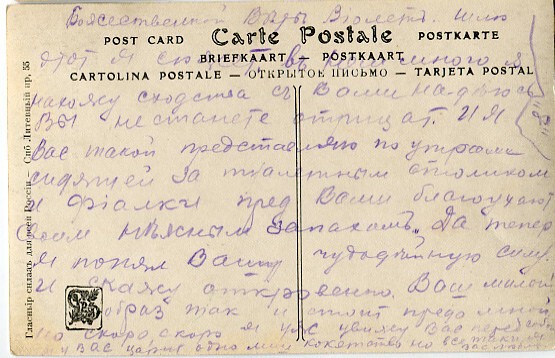 Божественной Вѣры Віолетъ. шлю
POST CARD Carte Postale POSTKARTE
этот я въ много я
BRIEFKAART — POSTKAART
CARTOLINA POSTALE — ОТКРЫТОЕ ПИСЬМО — TARJETA POSTAL
нахожу сходства съ Вами надѣюсь
Вы не станете отрицат. И я
Вас такой представляю по утрами
сидящей за туалетным столиком
и фіалки пред Вами благоухают
своим нѣжным запахомъ. Да тепер
я понял Вашу чудодѣйную силу
и скажу откровенно. Ваш милый
образ так и стоит предо мной
но скоро скоро я уж увижу Вас перед собой
у Вас царит одно кокетство но все таки я
Вас
Главный складъ для всей Россіи — Спб. Литейный пр. 55